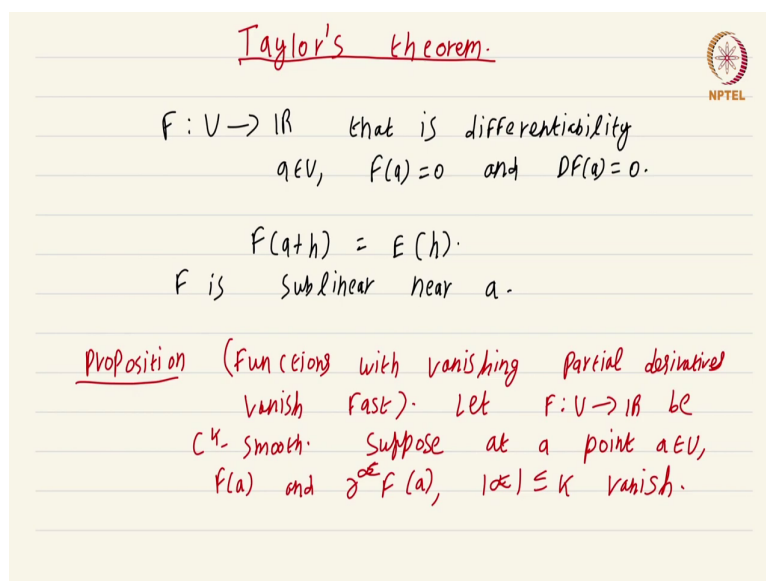 Taylor's theorem.
NPTEL
F : U → ℝ that is differentiability
a ∈ U, F(a) = 0 and DF(a) = 0.
F(a+h) = E(h).
F is sublinear near a.
Proposition (Functions with vanishing partial derivatives
vanish fast). Let F : U → ℝ be
C^k- smooth. Suppose at a point a ∈ U,
F(a) and ∂^α F(a), |α| ≤ k vanish.